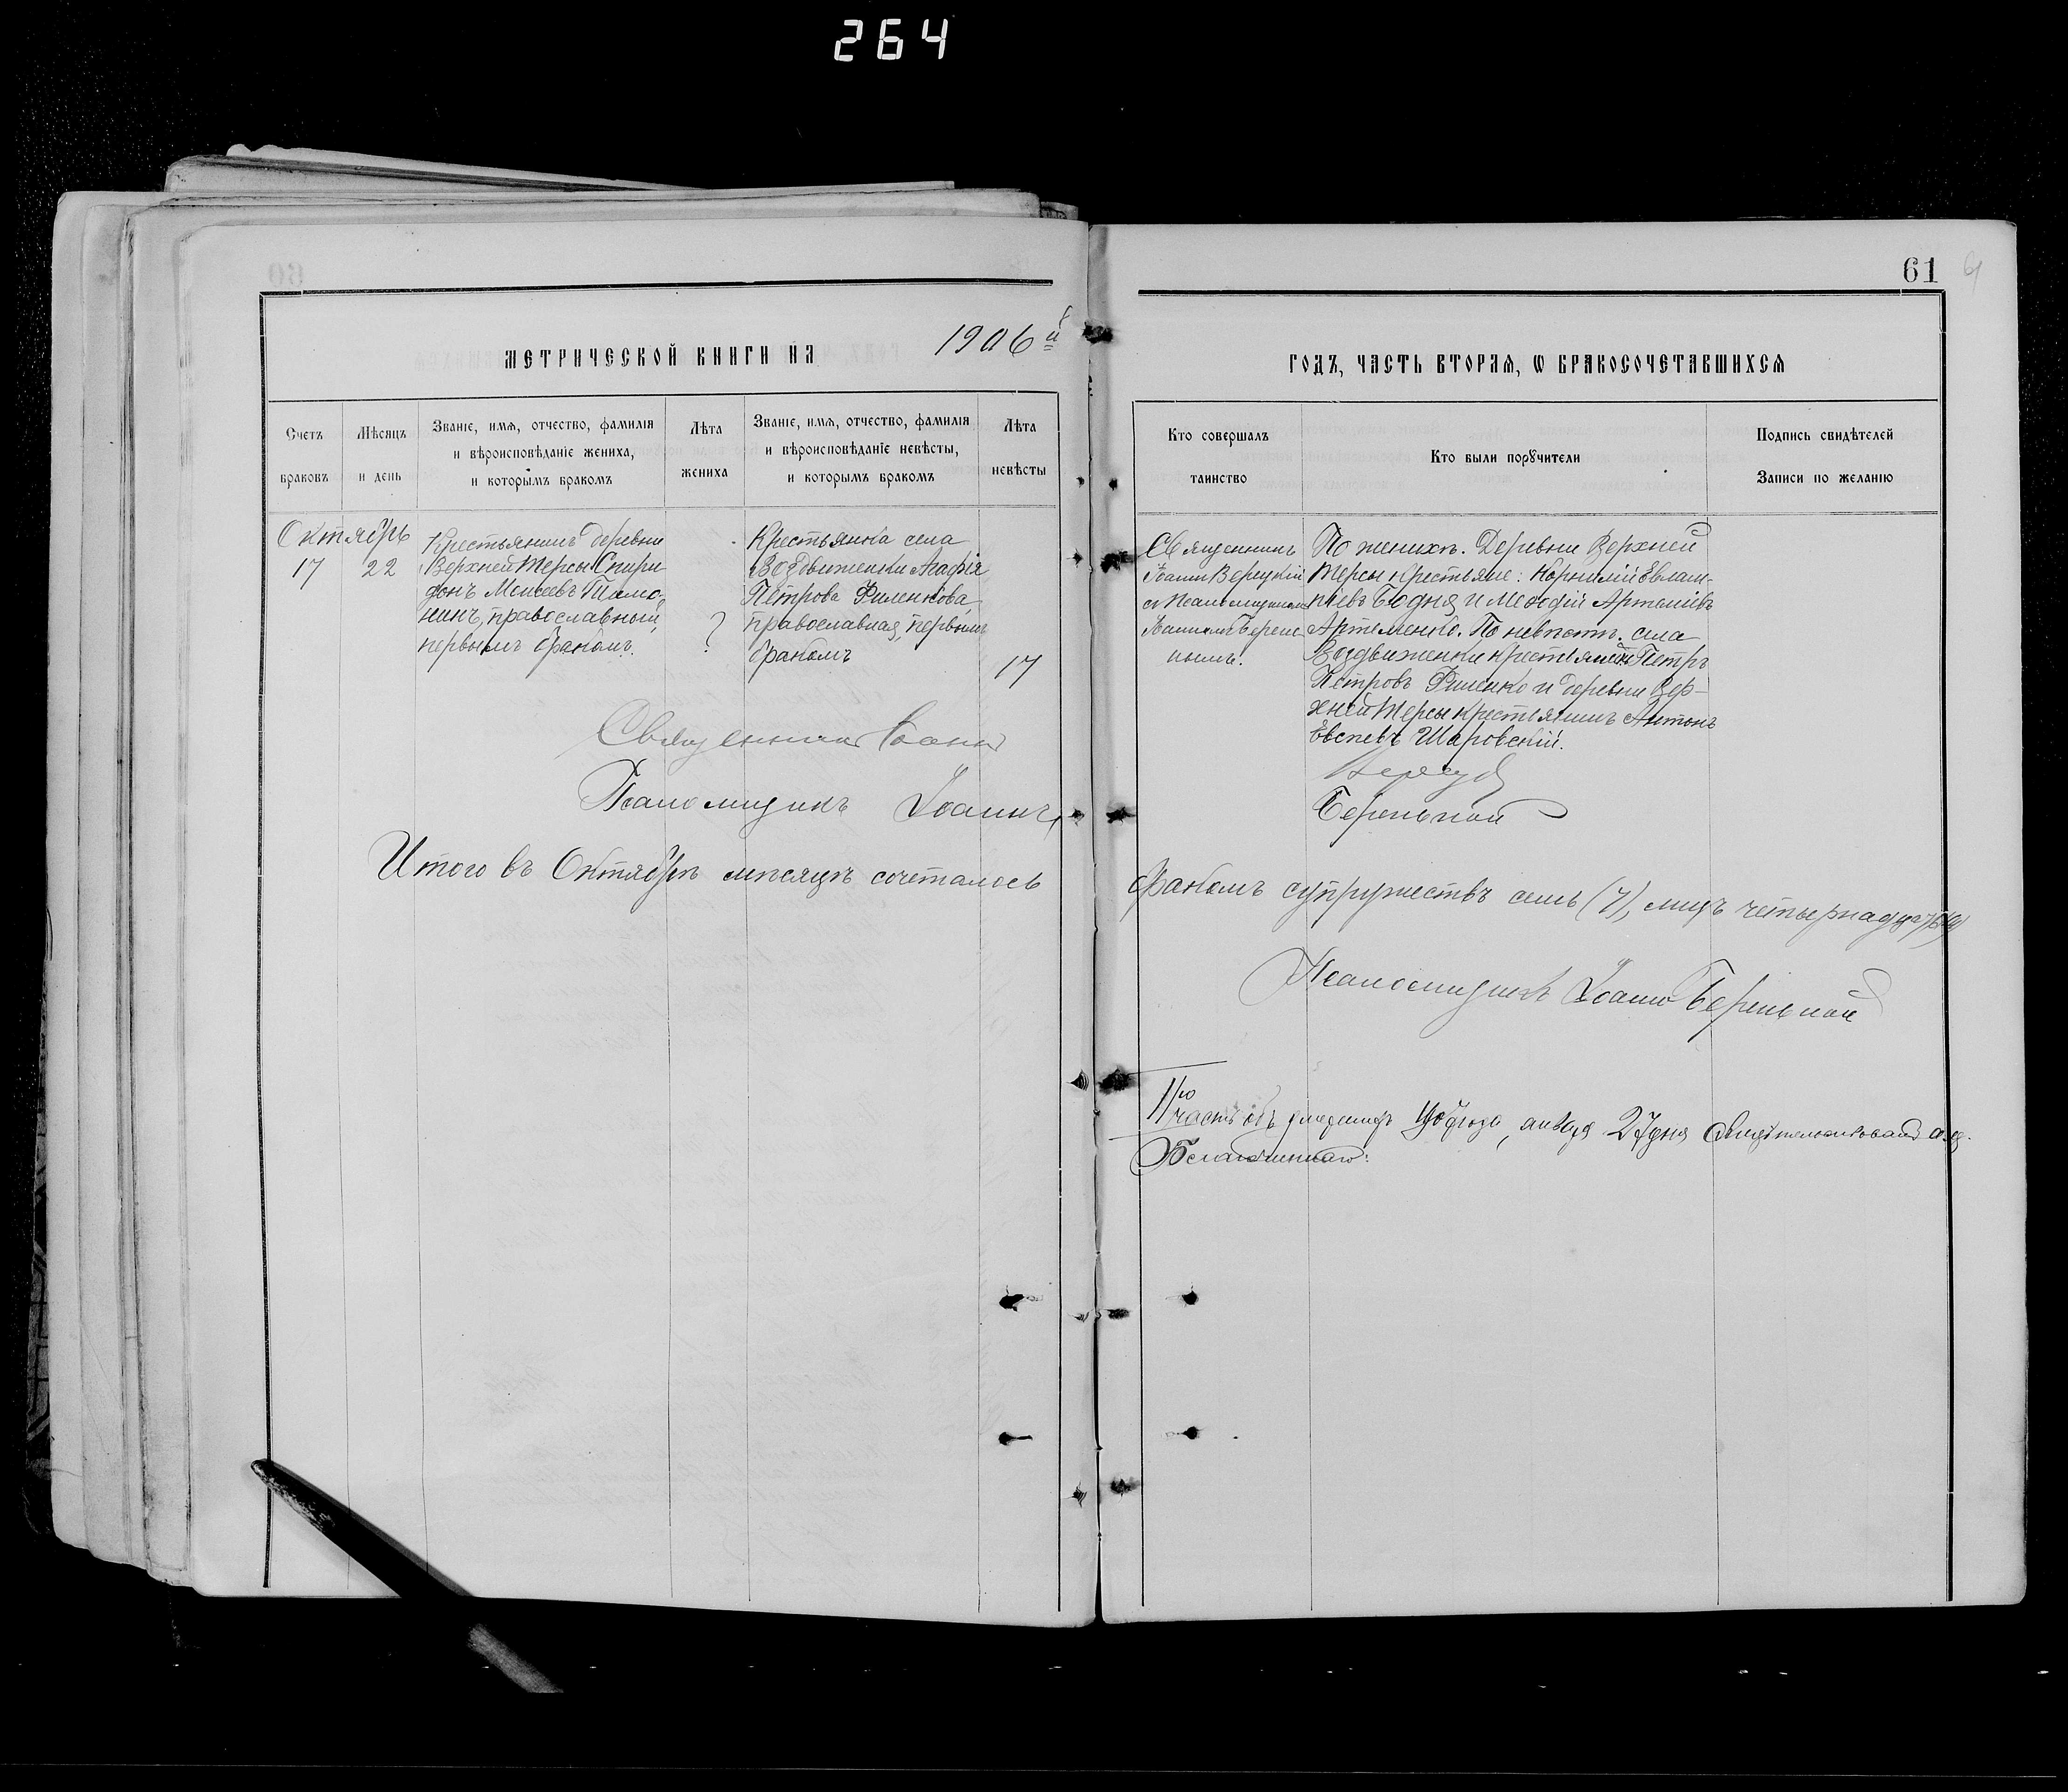 264
61
МЕТРИЧЕСКОЙ КНИГИ НА 1906й
ГОДЪ, ЧАСТЬ ВТОРАЯ, Ѡ БРАКОСОЧЕТАВШИХСЯ
Счетъ браковъ
Мѣсяцъ и день
Званіе, имя, отчество, фамилія
и вѣроисповѣданіе жениха,
и которымъ бракомъ
Лѣта жениха
Званіе, имя, отчество, фамилія
и вѣроисповѣданіе невѣсты,
и которымъ бракомъ
Лѣта невѣсты
Кто совершалъ
таинство
Кто были порꙋчители
Подпись свидѣтелей
Записи по желанію
Октябрь
17 22
Крестьянинъ деревни
Верхней Терсы Спири
донъ Моисеевъ
нинъ, православный,
первымъ бракомъ.
?
Крестьянка села
Воздвиженки Агафія
Петрова Филенкова,
православная, первымъ
бракомъ
17
Священникъ
Іоаннъ Верецкій
съ Псаломщикомъ
Іоанномъ Берень
нымъ.
По женихѣ. Деревни Верхней
Терсы крестьяне: Корнилій Евлам-
піевъ Бодня и Меѳодій Артеміевъ
Артеменко. По невѣстѣ. села
Воздвиженки крестьянинъ Петръ
Петровъ Филенко и деревни Вер-
хней Терсы крестьянинъ Антонъ
Евсѣевъ Шаровскій.
Священникъ Іоаннъ
Псаломщикъ Іоаннъ
Береньной
Итого въ Октябрѣ мѣсяцѣ сочеталось
бракомъ супружествъ семь (7), лицъ четырнадцать (14)
Псаломщикъ Іоаннъ Береньной
27 дня